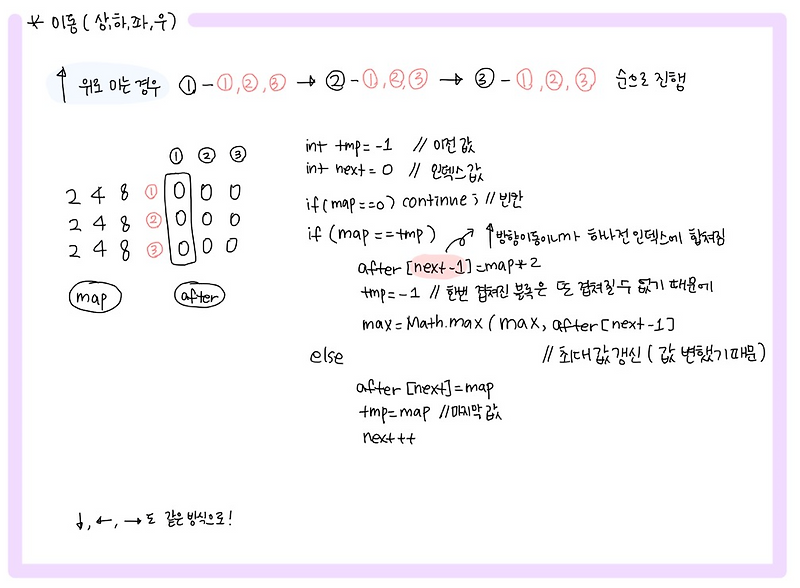 * 이동(상,하,좌,우)
↑ 위로 미는 경우 ①-①,②,③ → ②-①,②,③ → ③-①,②,③ 순으로 진행
① ② ③
2 4 8 ① 0 0 0
2 4 8 ② 0 0 0
2 4 8 ③ 0 0 0
map after
int tmp=-1 // 이전값
int next=0 // 인덱스값
if(map==0) continue; // 빈칸
if (map==tmp) ↑방향이동이니까 하나전 인덱스에 합쳐짐
after [next-1]=map*2
tmp=-1 // 한번 겹쳐진 블록은 또 겹쳐질 수 없기 때문에
max=Math.max(max, after[next-1]
// 최대값 갱신 ( 값 변했기때문)
else
after [next]=map
tmp=map //마지막값
next++
↓, ←, →도 같은 방식으로!